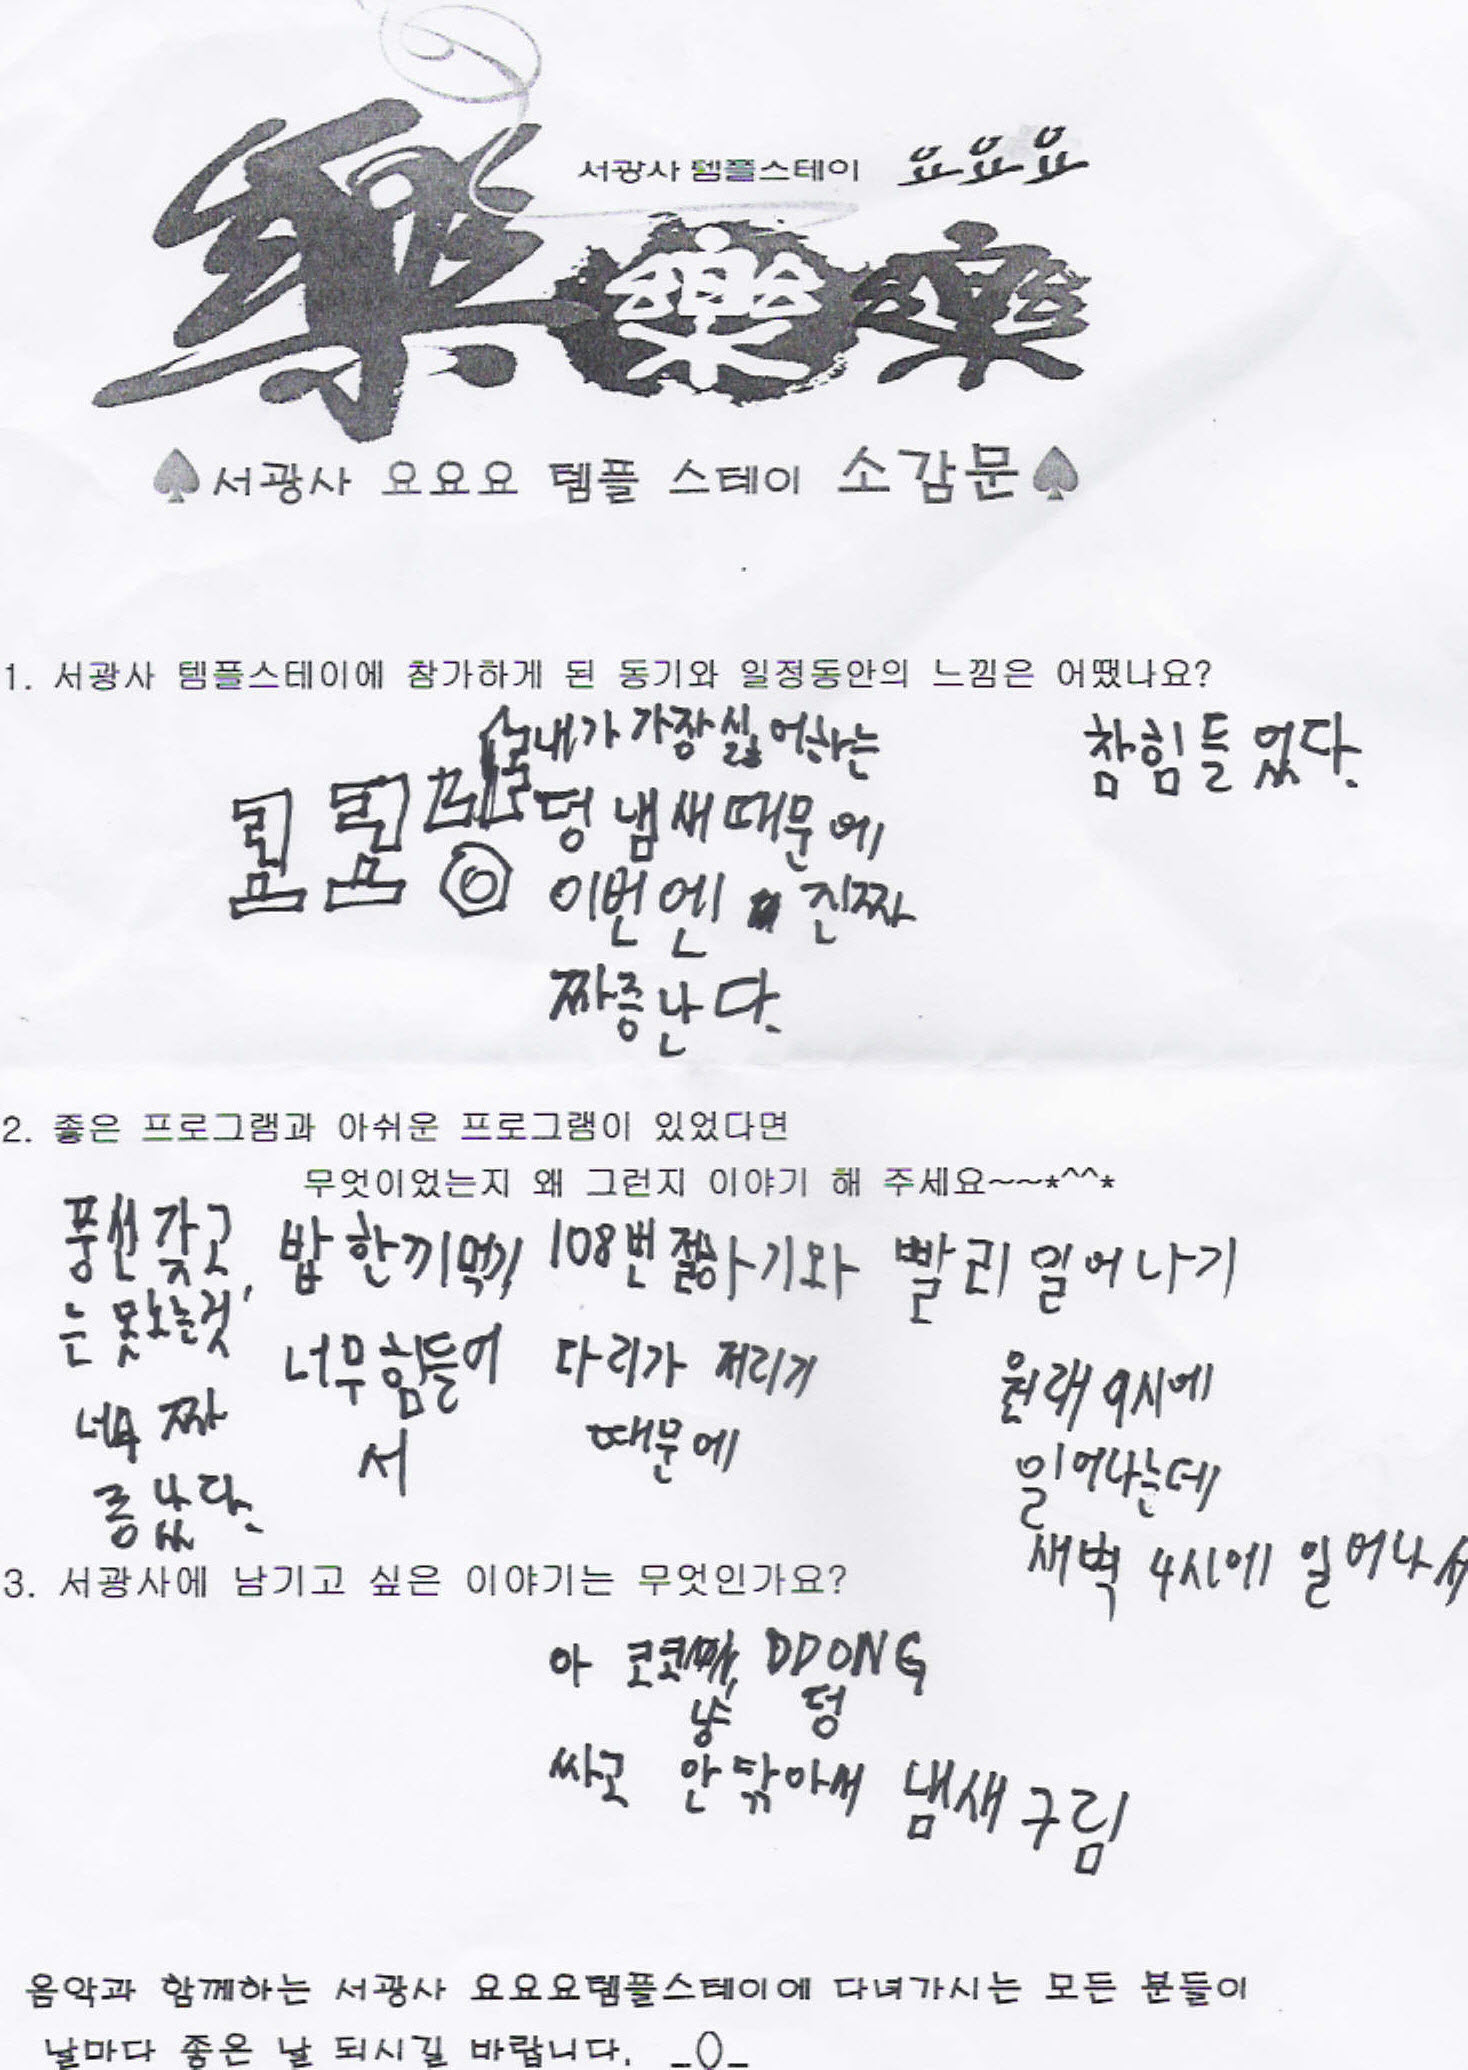 서광사 템플스테이 요요요
樂 樂 樂
♠서광사 요요요 템플 스테이 소감문♠
1. 서광사 템플스테이에 참가하게 된 동기와 일정동안의 느낌은 어땠나요?
참힘들었다.
내가 가장싫어하는
덩냄새때문에
이번엔 진짜
짜증난다.
2. 좋은 프로그램과 아쉬운 프로그램이 있었다면
무엇이었는지 왜 그런지 이야기 해 주세요~~*^^*
풍선갖고
는 못노는것
너무 짜
증났다.
밥한끼먹기
너무힘들어
서
108번절하기와
다리가 저리기
때문에
빨리일어나기
원래 9시에
일어나는데
새벽 4시에 일어나서
3. 서광사에 남기고 싶은 이야기는 무엇인가요?
아 코코 DDONG
냥 덩
싸고 안닦아써 냄새구림
음악과 함께하는 서광사 요요요템플스테이에 다녀가시는 모든 분들이
날마다 좋은 날 되시길 바랍니다. _()_